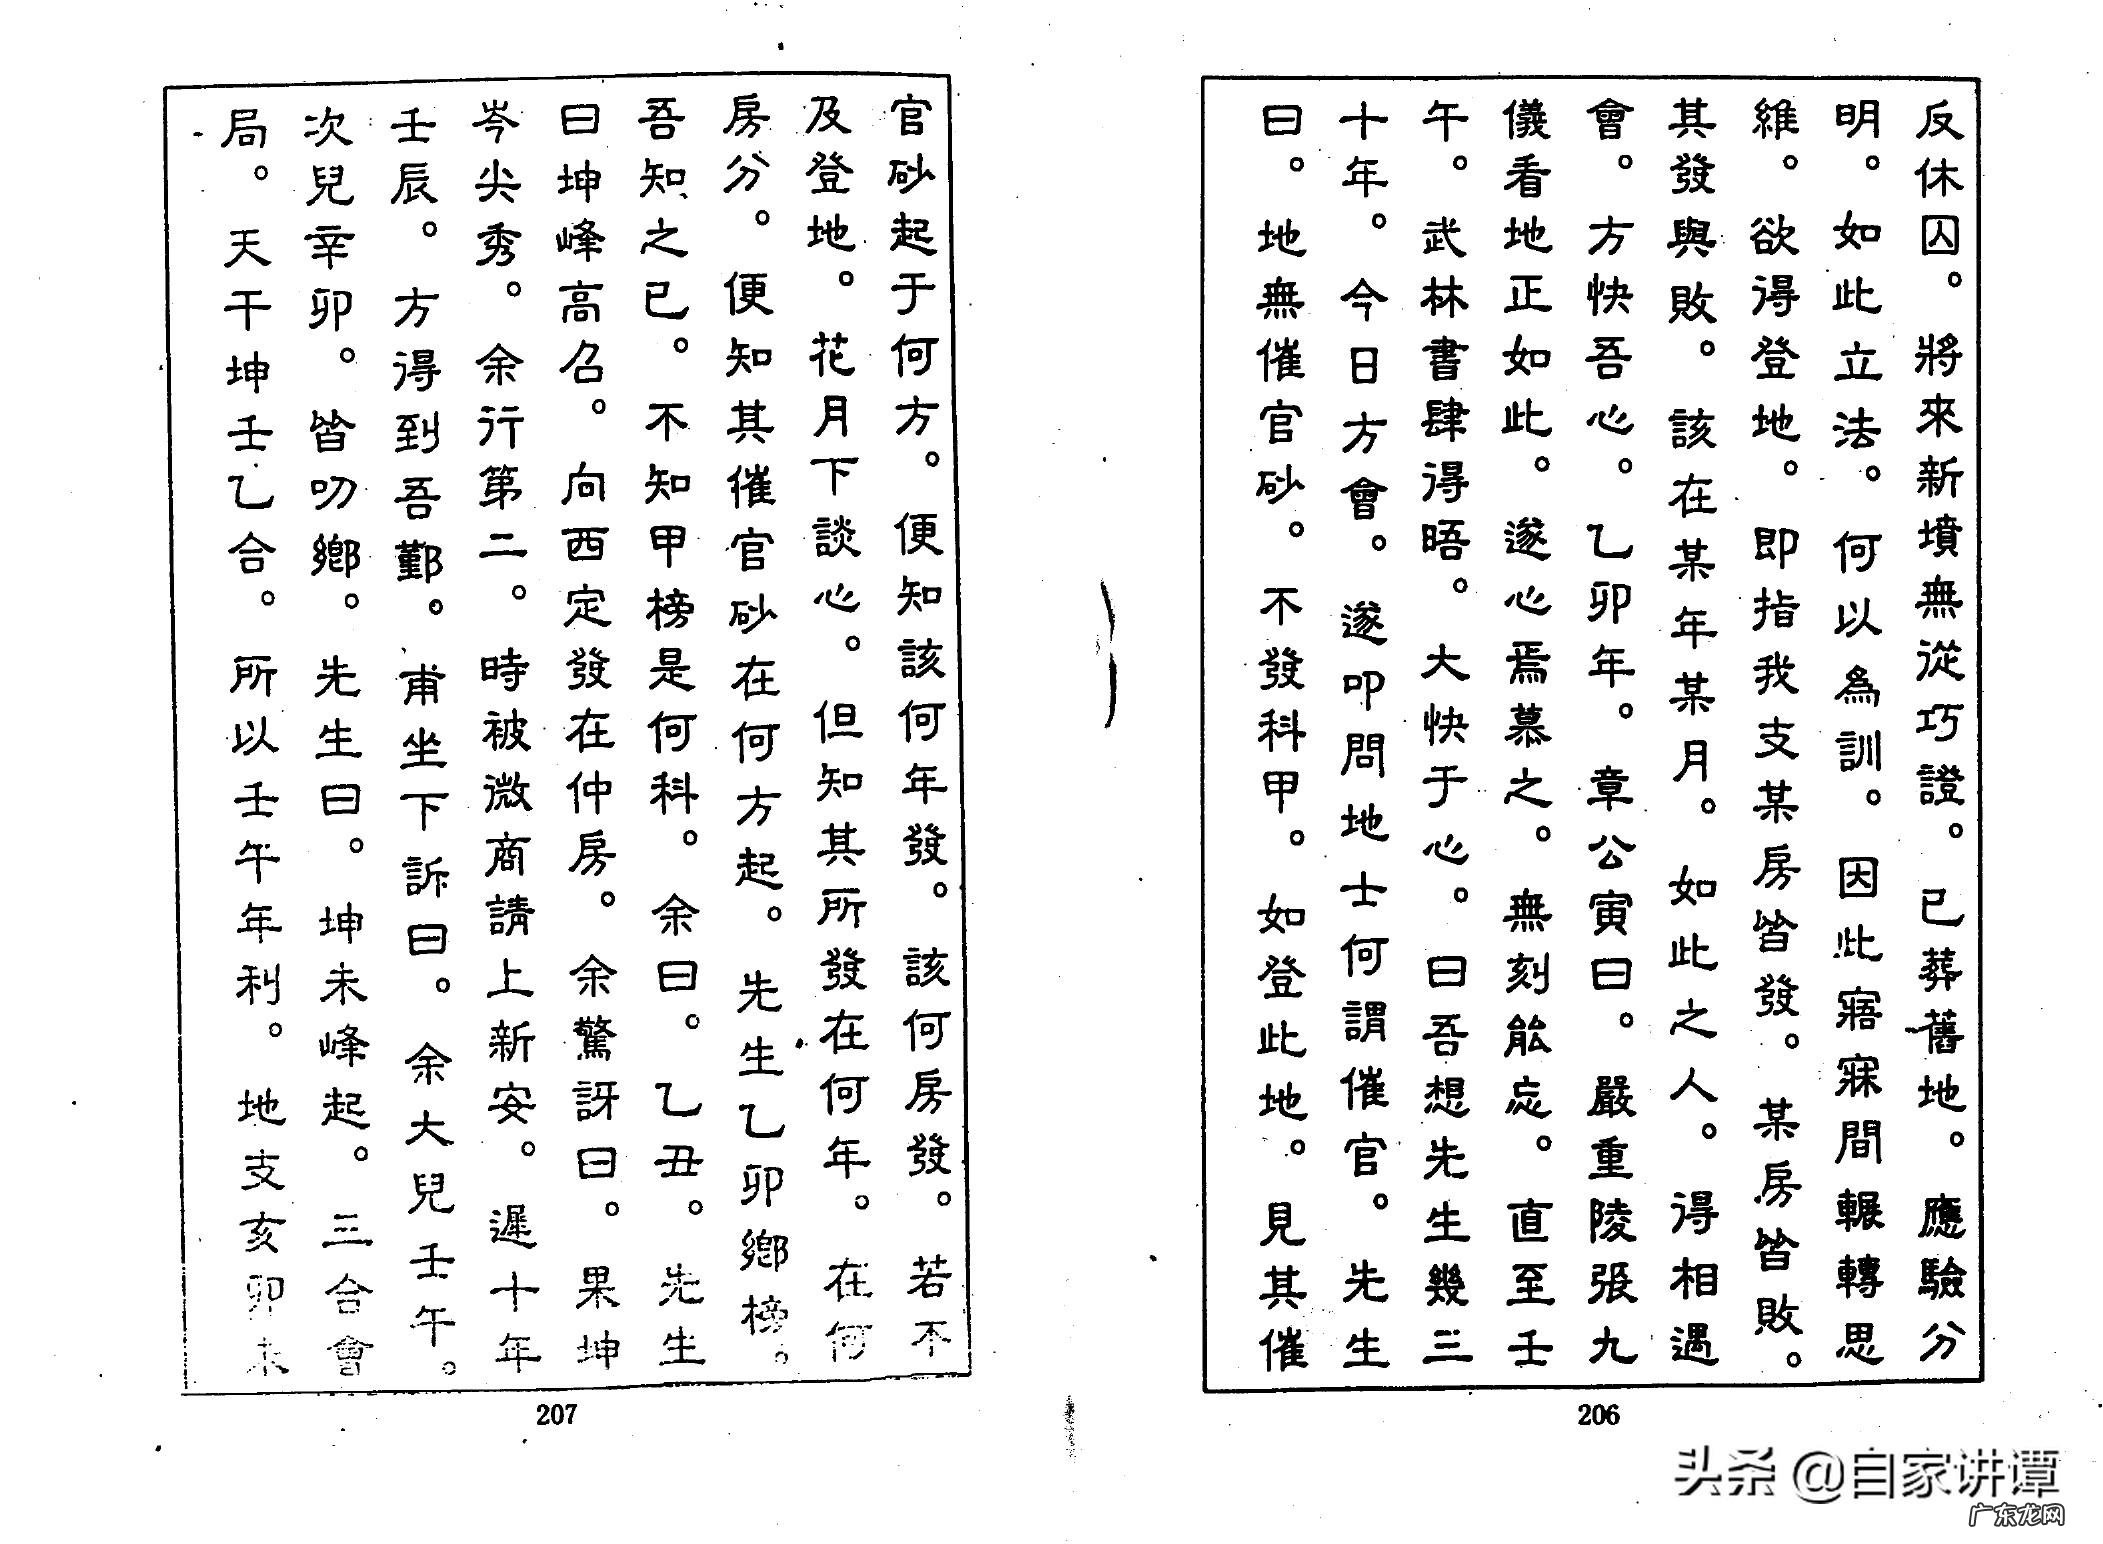 反休囚。將來新墳無從巧證。已葬舊地。應驗分
明。如此立法。何以為訓。因此寤寐間輾轉思
維。欲得登地。即指我支某房皆發。某房皆敗。
其發與敗。該在某年某月。如此之人。得相遇
會。方快吾心。乙卯年。章公寅曰。嚴重陵張九
儀看地正如此。遂心焉慕之。無刻能忘。直至壬
午。武林書肆得晤。大快于心。曰吾想先生幾三
十年。今日方會。遂叩問地士何謂催官。先生
曰。地無催官砂。不發科甲。如登此地。見其催
206
官砂起于何方。便知該何年發。該何房發。若不
及登地。花月下談心。但知其所發在何年。在何
房分。便知其催官砂在何方起。先生乙卯鄉榜。
吾知之已。不知甲榜是何科。余曰。乙丑。先生
曰坤峰高召。向西定發在仲房。余驚訝曰。果坤
岑尖秀。余行第二。時被微商請上新安。遲十年
壬辰。方得到吾鄞。甫坐下訴曰。余大兒壬午。
次兒辛卯。皆叨鄉。先生曰。坤未峰起。三合會
局。天干坤壬乙合。所以壬午年利。地支亥卯未
207
头条 @自家讲谭
广东龙网